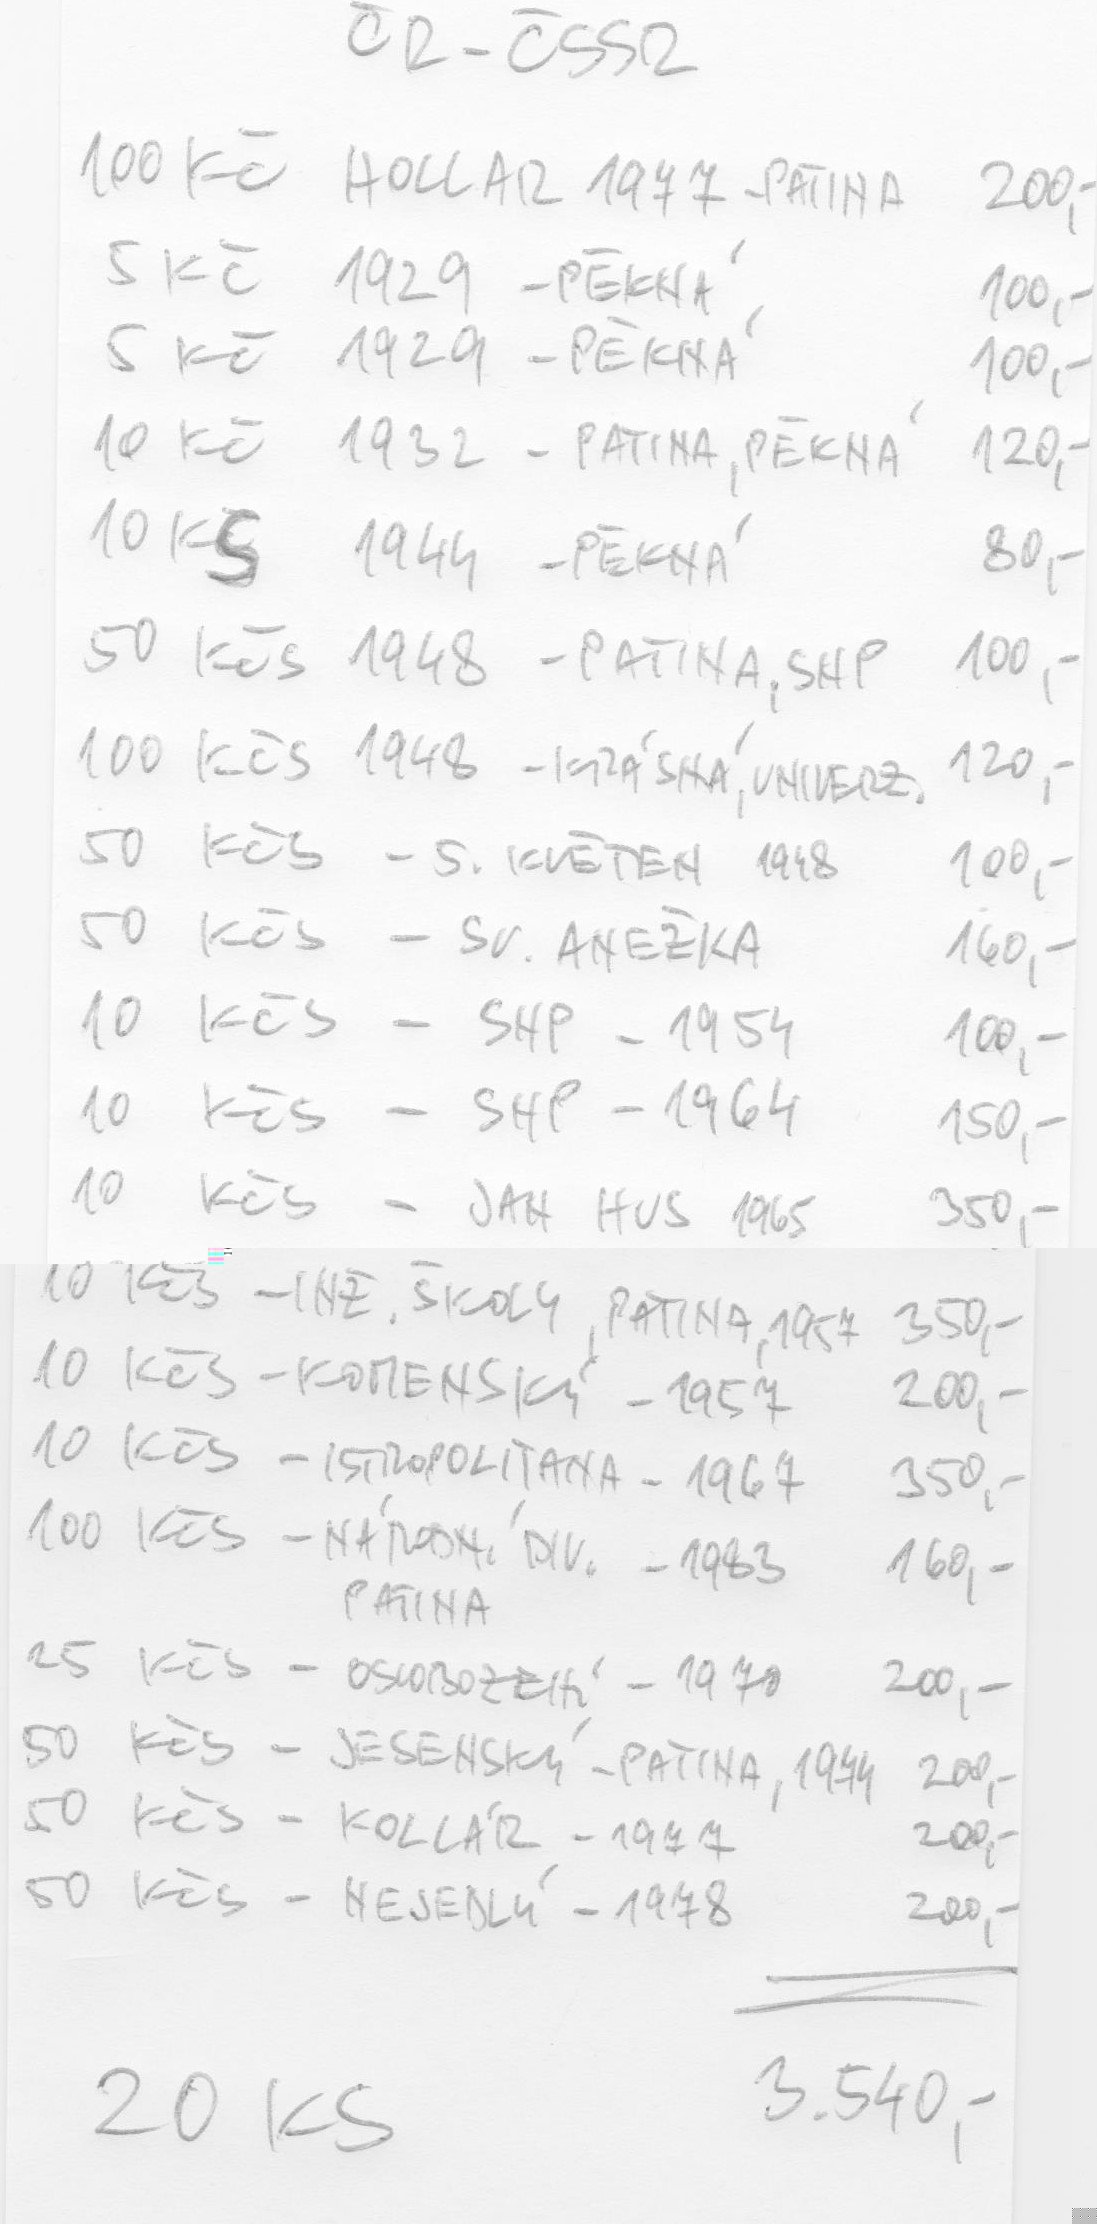 ČR - ČSSR
100 Kč HOLLAR 1977 - PATINA 200,-
5 Kč 1929 - PĚKNÁ 100,-
5 Kč 1929 - PĚKNÁ 100,-
10 Kč 1932 - PATINA, PĚKNÁ 120,-
10 KS 1944 - PĚKNÁ 80,-
50 Kčs 1948 - PATINA, SNP 100,-
100 Kčs 1948 - KRÁSNÁ, UNIVERZ. 120,-
50 Kčs - 5. KVĚTEN 1948 100,-
50 Kčs - SV. ANEŽKA 160,-
10 Kčs - SNP - 1954 100,-
10 Kčs - SNP - 1964 150,-
10 Kčs - JAN HUS 1965 350,-
10 Kčs - INŽ. ŠKOLY, PATINA, 1957 350,-
10 Kčs - KOMENSKÝ - 1957 200,-
10 Kčs - ISTROPOLITANA - 1967 350,-
100 Kčs - NÁRODNÍ DIV. - 1983 160,-
PATINA
25 Kčs - OSVOBOZENÍ - 1970 200,-
50 Kčs - JESENSKÝ - PATINA, 1974 200,-
50 Kčs - KOLLÁR - 1977 200,-
50 Kčs - NEJEDLÝ - 1978 200,-
20 KS 3.540,-